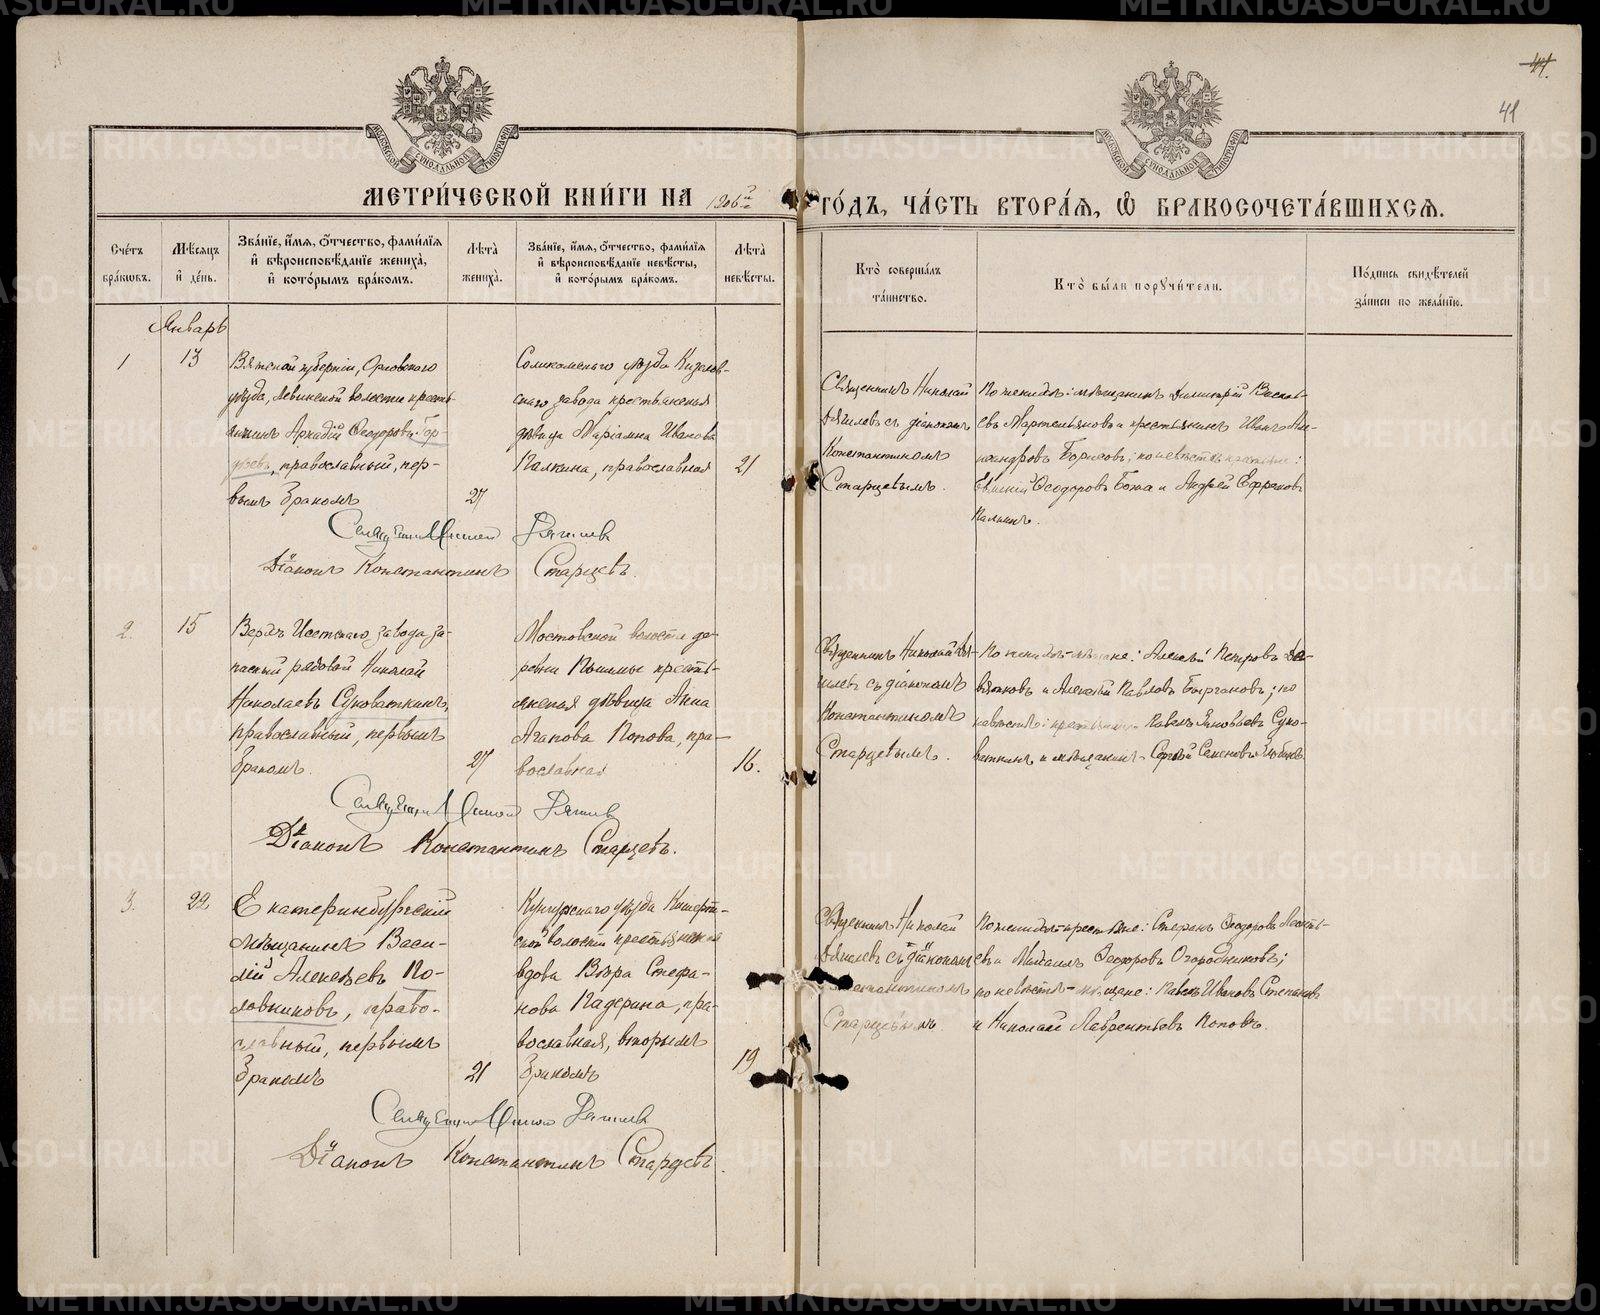 41.
41
МОСКОВСКОЙ СѴНОДАЛЬНОЙ ТИПОГРАФІИ
МОСКОВСКОЙ СѴНОДАЛЬНОЙ ТИПОГРАФІИ
МЕТРИ́ЧЕСКОЙ КНИ́ГИ НА 1906й ГО́ДЪ, ЧА́СТЬ ВТОРА́Я, Ѽ БРАКОСОЧЕТА́ВШИХСЯ.
Сче́тъ бра́ковъ.
Мѣ́сяцъ и҆ де́нь.
Зва́нїе, и҆́мя, ѻ҆́тчество, фами́лїя и҆ вѣроисповѣ́данїе жениха̀, и҆ кото́рымъ бра́комъ.
Лѣ́та жениха̀.
Зва́нїе, и҆́мя, ѻ҆́тчество, фами́лїя и҆ вѣроисповѣ́данїе невѣ́сты, и҆ кото́рымъ бра́комъ.
Лѣ́та невѣ́сты.
Кто̀ соверша́лъ та́инство.
Кто̀ бы́ли порꙋчи́тели.
По́дпись свидѣ́телей за́писи по жела́нїю.
Январь
1
13
Вятской губерніи, Орловскаго
уѣзда, Левинской волости кресть-
янинъ Аркадій Ѳеодоровъ Гор-
дѣевъ, православный, пер-
вымъ бракомъ
27
Соликамскаго уѣзда Кизелов-
скаго завода крестьянская
дѣвица Маріамна Иванова
Палкина, православная
21
Священникъ Николай
Дягилевъ съ діакономъ
Константиномъ
Старцевымъ.
По женихѣ: мѣщанинъ Димитрій Василь-
евъ Мартемьяновъ и крестьянинъ Иванъ
Борисовъ; по невѣстѣ крестьяне:
Ѳеодоровъ и Андрей Ефремовъ
Палкинъ.
Священникъ Николай Дягилевъ
Діаконъ Константинъ Старцевъ.
2.
15
Верхъ Исетскаго завода за-
пасный рядовой Николай
Николаевъ Суковаткинъ,
православный, первымъ
бракомъ.
27
Мостовской волости де-
ревни Пышмы кресть-
янская дѣвица Анна
Агапова Попова, пра-
вославная
16.
Священникъ Николай Дя-
гилевъ съ діакономъ
Константиномъ
Старцевымъ.
По женихѣ мѣщане: Алексѣй Петровъ Де-
вятковъ и Алексѣй Павловъ; по
невѣстѣ: крестьянинъ Павелъ Яковлевъ Суко-
ваткинъ и мѣщанинъ Сергѣй Семеновъ
Священникъ Николай Дягилевъ
Діаконъ Константинъ Старцевъ.
3.
22
Екатеринбургскій
мѣщанинъ Васи-
лій Алексѣевъ По-
ловниковъ, право-
славный, первымъ
бракомъ
21
Кунгурскаго уѣзда Кишерт-
ской волости крестьянская
вдова Вѣра Стефа-
нова Падерина, пра-
вославная, вторымъ
бракомъ
19
Священникъ Николай
Дягилевъ съ діакономъ
Константиномъ
Старцевымъ.
По женихѣ крестьяне: Стефанъ Ѳеодоровъ Леонть-
евъ и Михаилъ Ѳеодоровъ Огородниковъ;
по невѣстѣ мѣщане: Павелъ Ивановъ Степановъ
и Николай Лаврентьевъ Поповъ.
Священникъ Николай Дягилевъ
Діаконъ Константинъ Старцевъ.
METRIKI.GASO-URAL.RU